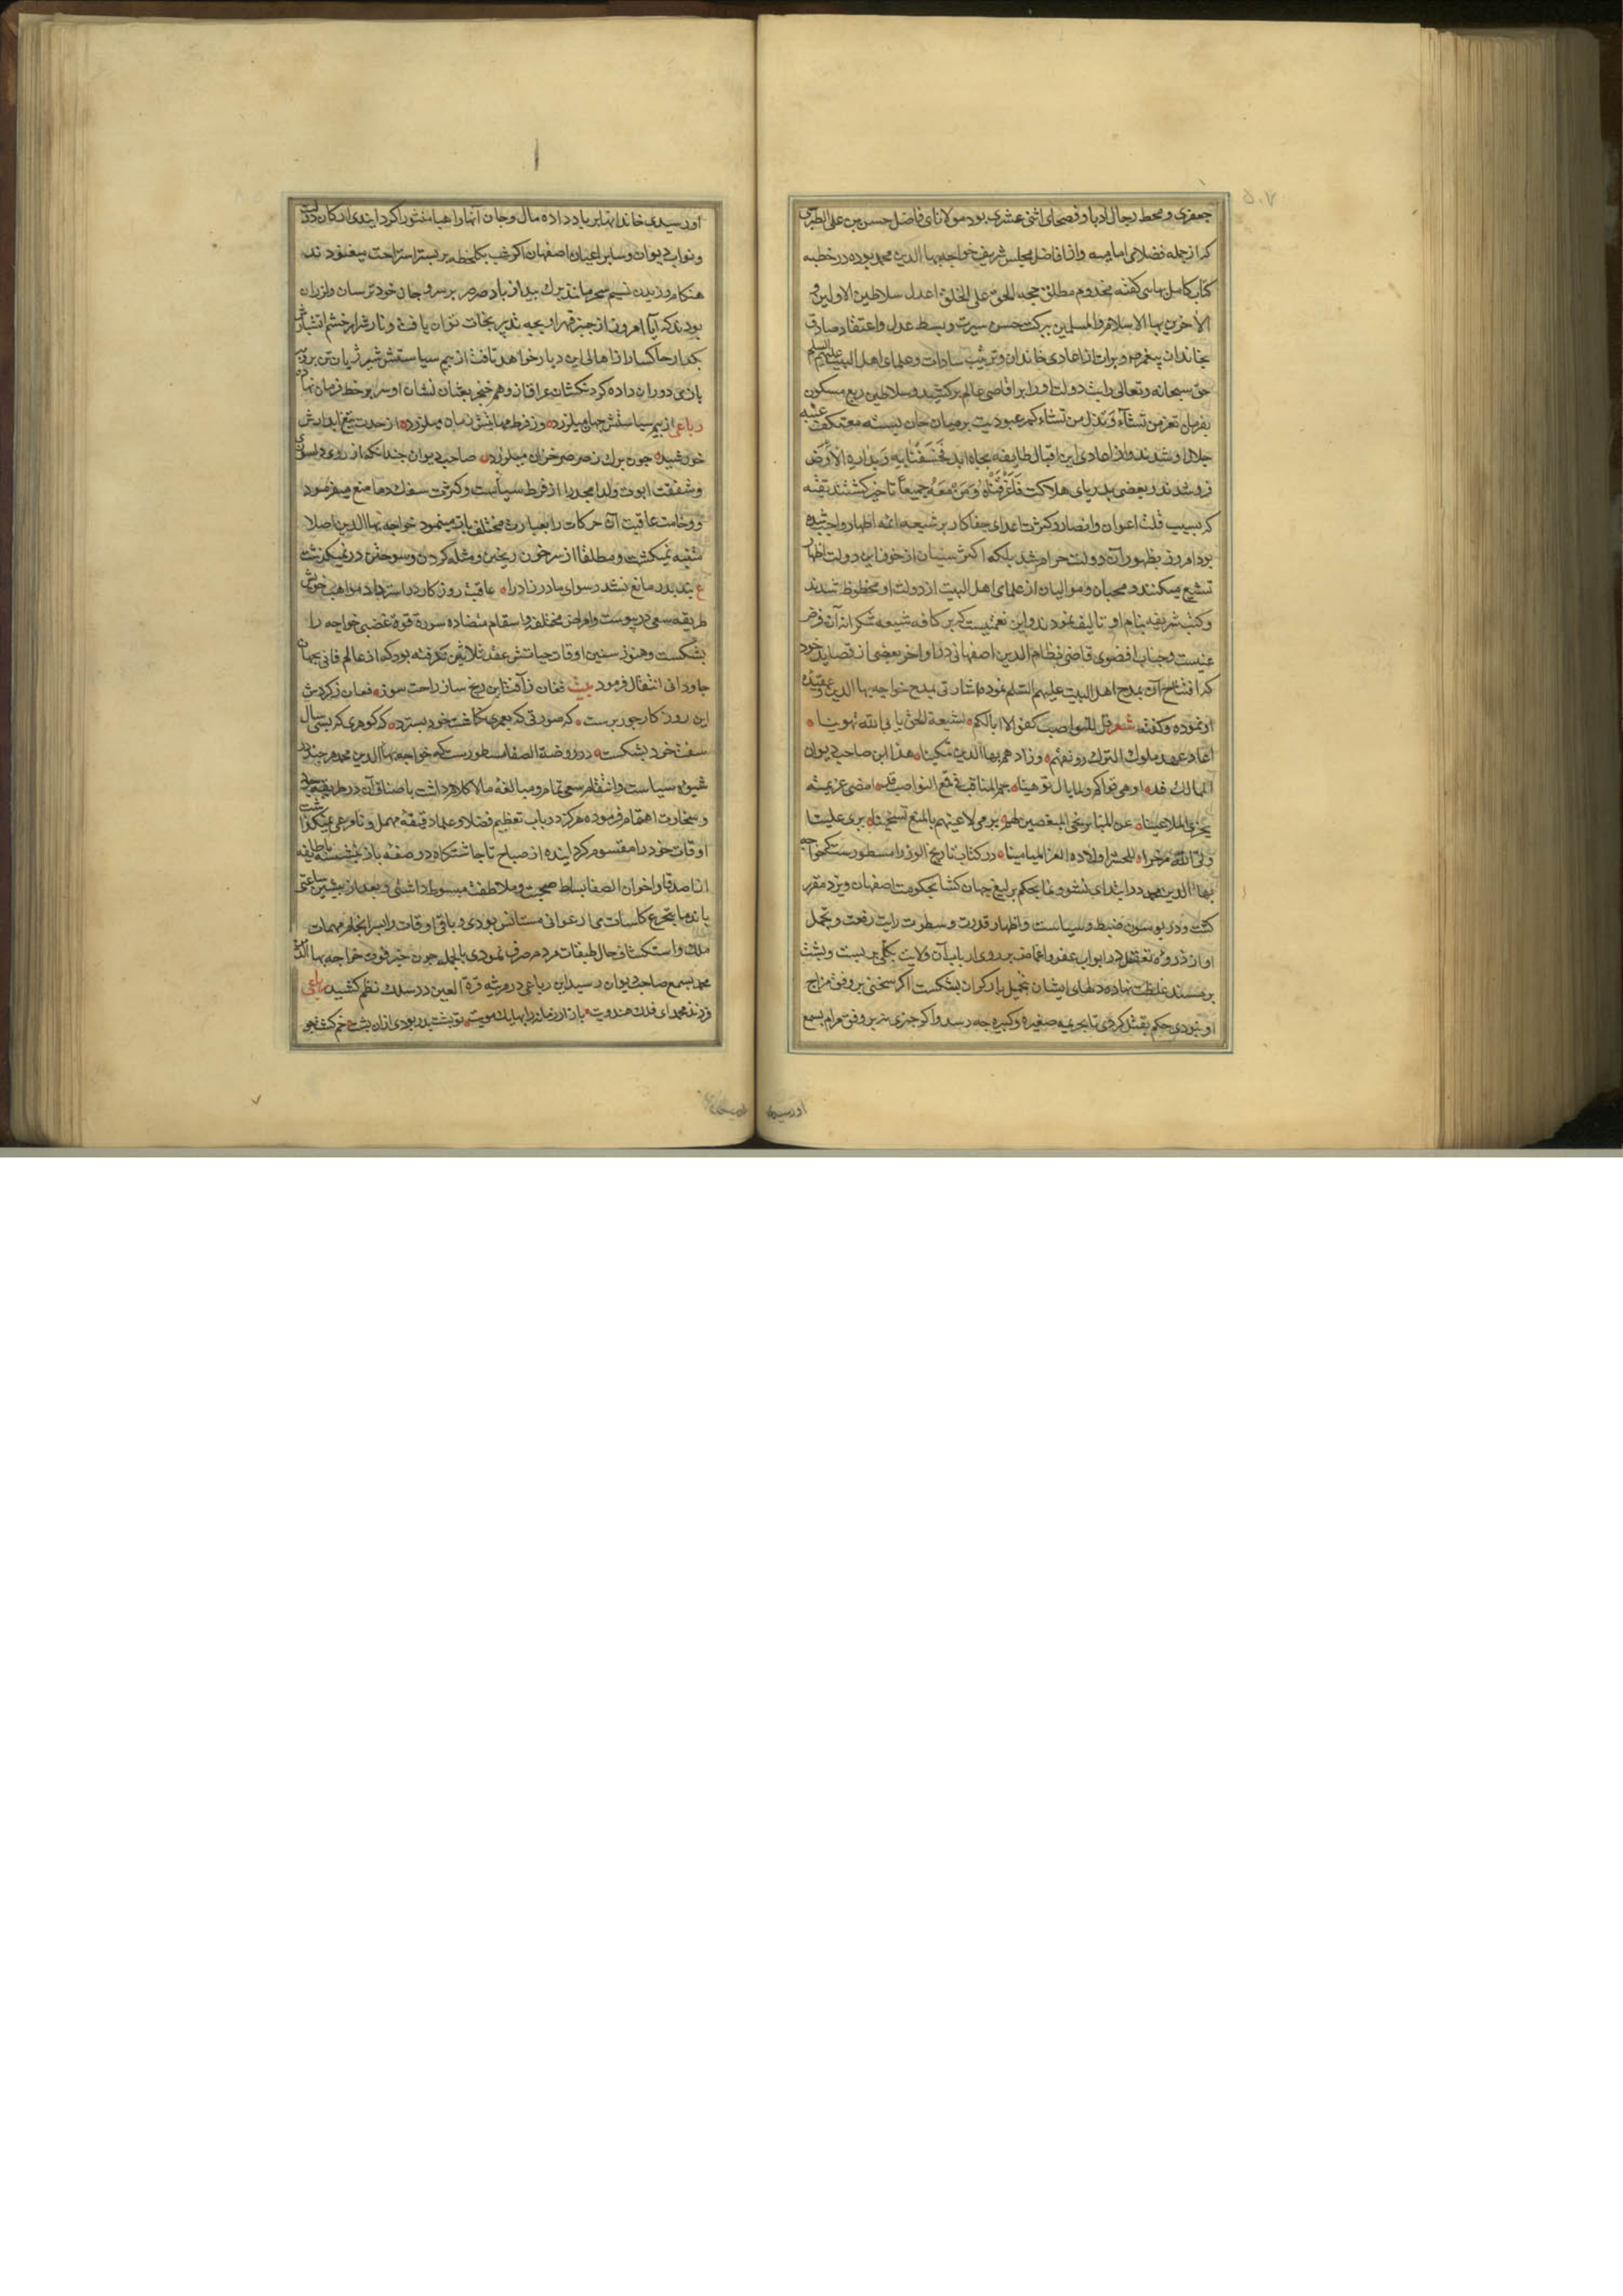 جعفری و محط رجال ادبا و فصحای اثنی عشری بود مولانای فاضل حسن بن علی الطبری
که از جمله فضلای امامیه و از افاضل مجلس شریف خواجه بها الدین محمد بوده در خطبه
کتاب کامل بهایی گفته مخدوم مطلق حجة الحق علی الخلق اعدل سلاطین الاولین و
الآخرین بها الاسلام والمسلمین ببرکت حسن سیرت و بسط عدل و اعتقاد صادق
بخاندان پیغمبر و برات از اعادی خاندان و تربیت سادات و علمای اهل البیت علیهم السلم
حق سبحانه و تعالی رایت دولت او را بر اقاصی عالم برکشید و سلاطین ربع مسکون
بفرمان تعز من تشآء و تذل من تشاء کمر عبودیت بر میان جان بسته معتکف عتبه
جلال او شدند و از اعادی این اقبال طایفه بچاه ابد فخسفنا به و بداره الارض
فرو شدند و بعضی بدریای هلاکت فاغرقناه و من معه جمیعاً تاخیر کشتند تقیه
که بسبب قلت اعوان و انصار و کثرت اعدای جفاکار بر شیعه ائمه اطهار واجب شده
بود امروز بظهور آن دولت حرام شد بلکه اکثر سنیان از خوف این دولت اظهار
تشیع میکنند و محبان و موالیان از علمای اهل البیت از دولت او محظوظ شدند
و کتب شریفه بنام او تالیف نمودند و این نعمتیست که بر کافه شیعه شکرانه آن فرض
عینست و جناب افضوی قاضی نظام الدین اصفهانی در اواخر بعضی از قصاید خود
که افتتاح آن بمدح اهل البیت علیهم السلم نموده اشارتی بمدح خواجه بها الدین و عقیده
او نموده و گفته شعر قل للنواصب کفوا لا ابا لکم لشیعة الحق یابی الله توهینا
اعاد عهد ملوک الترک رونقهم وزادهم بها الدین تمکینا هذا ابن صاحب دیوان
الممالک قد اوهی قواکم ولما یال توهینا جم المناقب فی قمع النواصب قد امضی عزیمته
یخزی الملاعینا عن المنابر نحی المبغضین لهم یرمی لاعینهم بالمنع تسخینا یری علیا
ولی الله مدخرا للحشر اولاده الغر المیامینا در کتاب تاریخ الوزرا مسطور ست که خواجه
بهاء الدین محمد در ابتدای نشو و نما بحکم یرلیغ جهان کشا بحکومت اصفهان و یزد مقرر
کشت و در یوسون ضبط و سیاست و اظهار قدرت و سطوت رایت رفعت و تجمل
او از ذروه تعقل در ابواب عفو و اغماض بر روی ارباب آن ولایت بکلی بر بست و پشت
بر مسند غلظت نهاده دلهای ایشان بتحمیل بار کران بشکست اگر سخنی بر وفق مزاج
او نبودی حکم بقتل کردی تا بجریمه صغیره و کبیره چه رسد و اگر چیزی نه بر وفق مرام بسمع
او رسیدی
او رسیدی خاندانها بر باد داده مال و جان آنها را هباء منثورا کردانیدی ارکان دولت
و نواب دیوان و سایر اعیان اصفهان اگر شب یکلحظه بر بستر استراحت میغنودند
هنکام وزیدن نسیم سحر مانند برک بید از باد صرصر بر سر و جان خود ترسان و لرزان
بودند که آیا امروز از چنبر قهر او بچه تدبیر نجات توان یافت و نار شرار خشم آتشبارش
بکدار خاکسار از اهالی این دیار خواهد تافت از بیم سیاستش شیر ژیان تن بروبه
بازی دوران داده گردنکشان عراق از وهم خنجر بعثان نشان او سر بر خط فرمان نهاده
رباعی از بیم سیاستش جهان میلرزد وز فرط مهابتش زمان میلرزد از حدت تیغ آبدارش
خورشید چون برک ز صرصر خزان میلرزد صاحب دیوان چندانکه از روی دلسوزی
و شفقت ابوت ولد امجد را از فرط سیاست و کثرت سفک دما منع میفرمود
و وخامت عاقبت آن حرکات را بعبارت مختلف باز مینمود خواجه بها الدین اصلا
متنبه نمیکشت و مطلقا از سر خون ریختن و مثله کردن و سوختن در نمیگذشت
ع پند پدر مانع نشد رسوای مادرزاد را عاقبة روزکار در استرداد مواهب خویش
طریقه سعی در پیوست و امراض مختلفه و اسقام متضاده سورة قوة غضبی خواجه را
بشکست و هنوز سنین اوقات حیاتش عقد ثلاثین نگرفته بود که از عالم فانی بجهان
جاودانی انتقال فرمود بیت فغان ز آفت این رنج ساز راحت سوز فغان ز گردش
این روز کار جور پرست که صورتی که بعمری نکاشت خود بسترد که گوهری که بسی سال
سفت خود بشکست در روضة الصفا مسطورست که خواجه بها الدین محمد هر چند در
شیوه سیاست و انتقام سعی تمام و مبالغه مالا کلام داشت باصناف آن در طریقه
و سخاوت اهتمام فرموده هرکز در باب تعظیم فضلا و علما دقیقه مهمل و نامرعی نمیگذاشت
اوقات خود را مقسوم کردانیده از صباح تا چاشتکاه در صفه بار نشسته با طایفه
از اصدقا و اخوان الصفا بساط صحبت و ملاطفت مبسوط داشتی و بعد از پیشین ساعتی
با ندما بتجرع کاسات می ارغوانی مستانس بودی و باقی اوقات را بسرانجام مهمات
ملک و استکشاف حال طبقات مردم صرف نمودی بالجمله چون خبر فوت خواجه بها الدین
محمد بسمع صاحب دیوان رسید این رباعی در مرثیه قرة العین در سلک نظم کشید رباعی
فرزند محمد ای فلک هندویت بازار زمانه را بها یک مویت تو پشت پدر بودی ازان پشت خم گشت چو